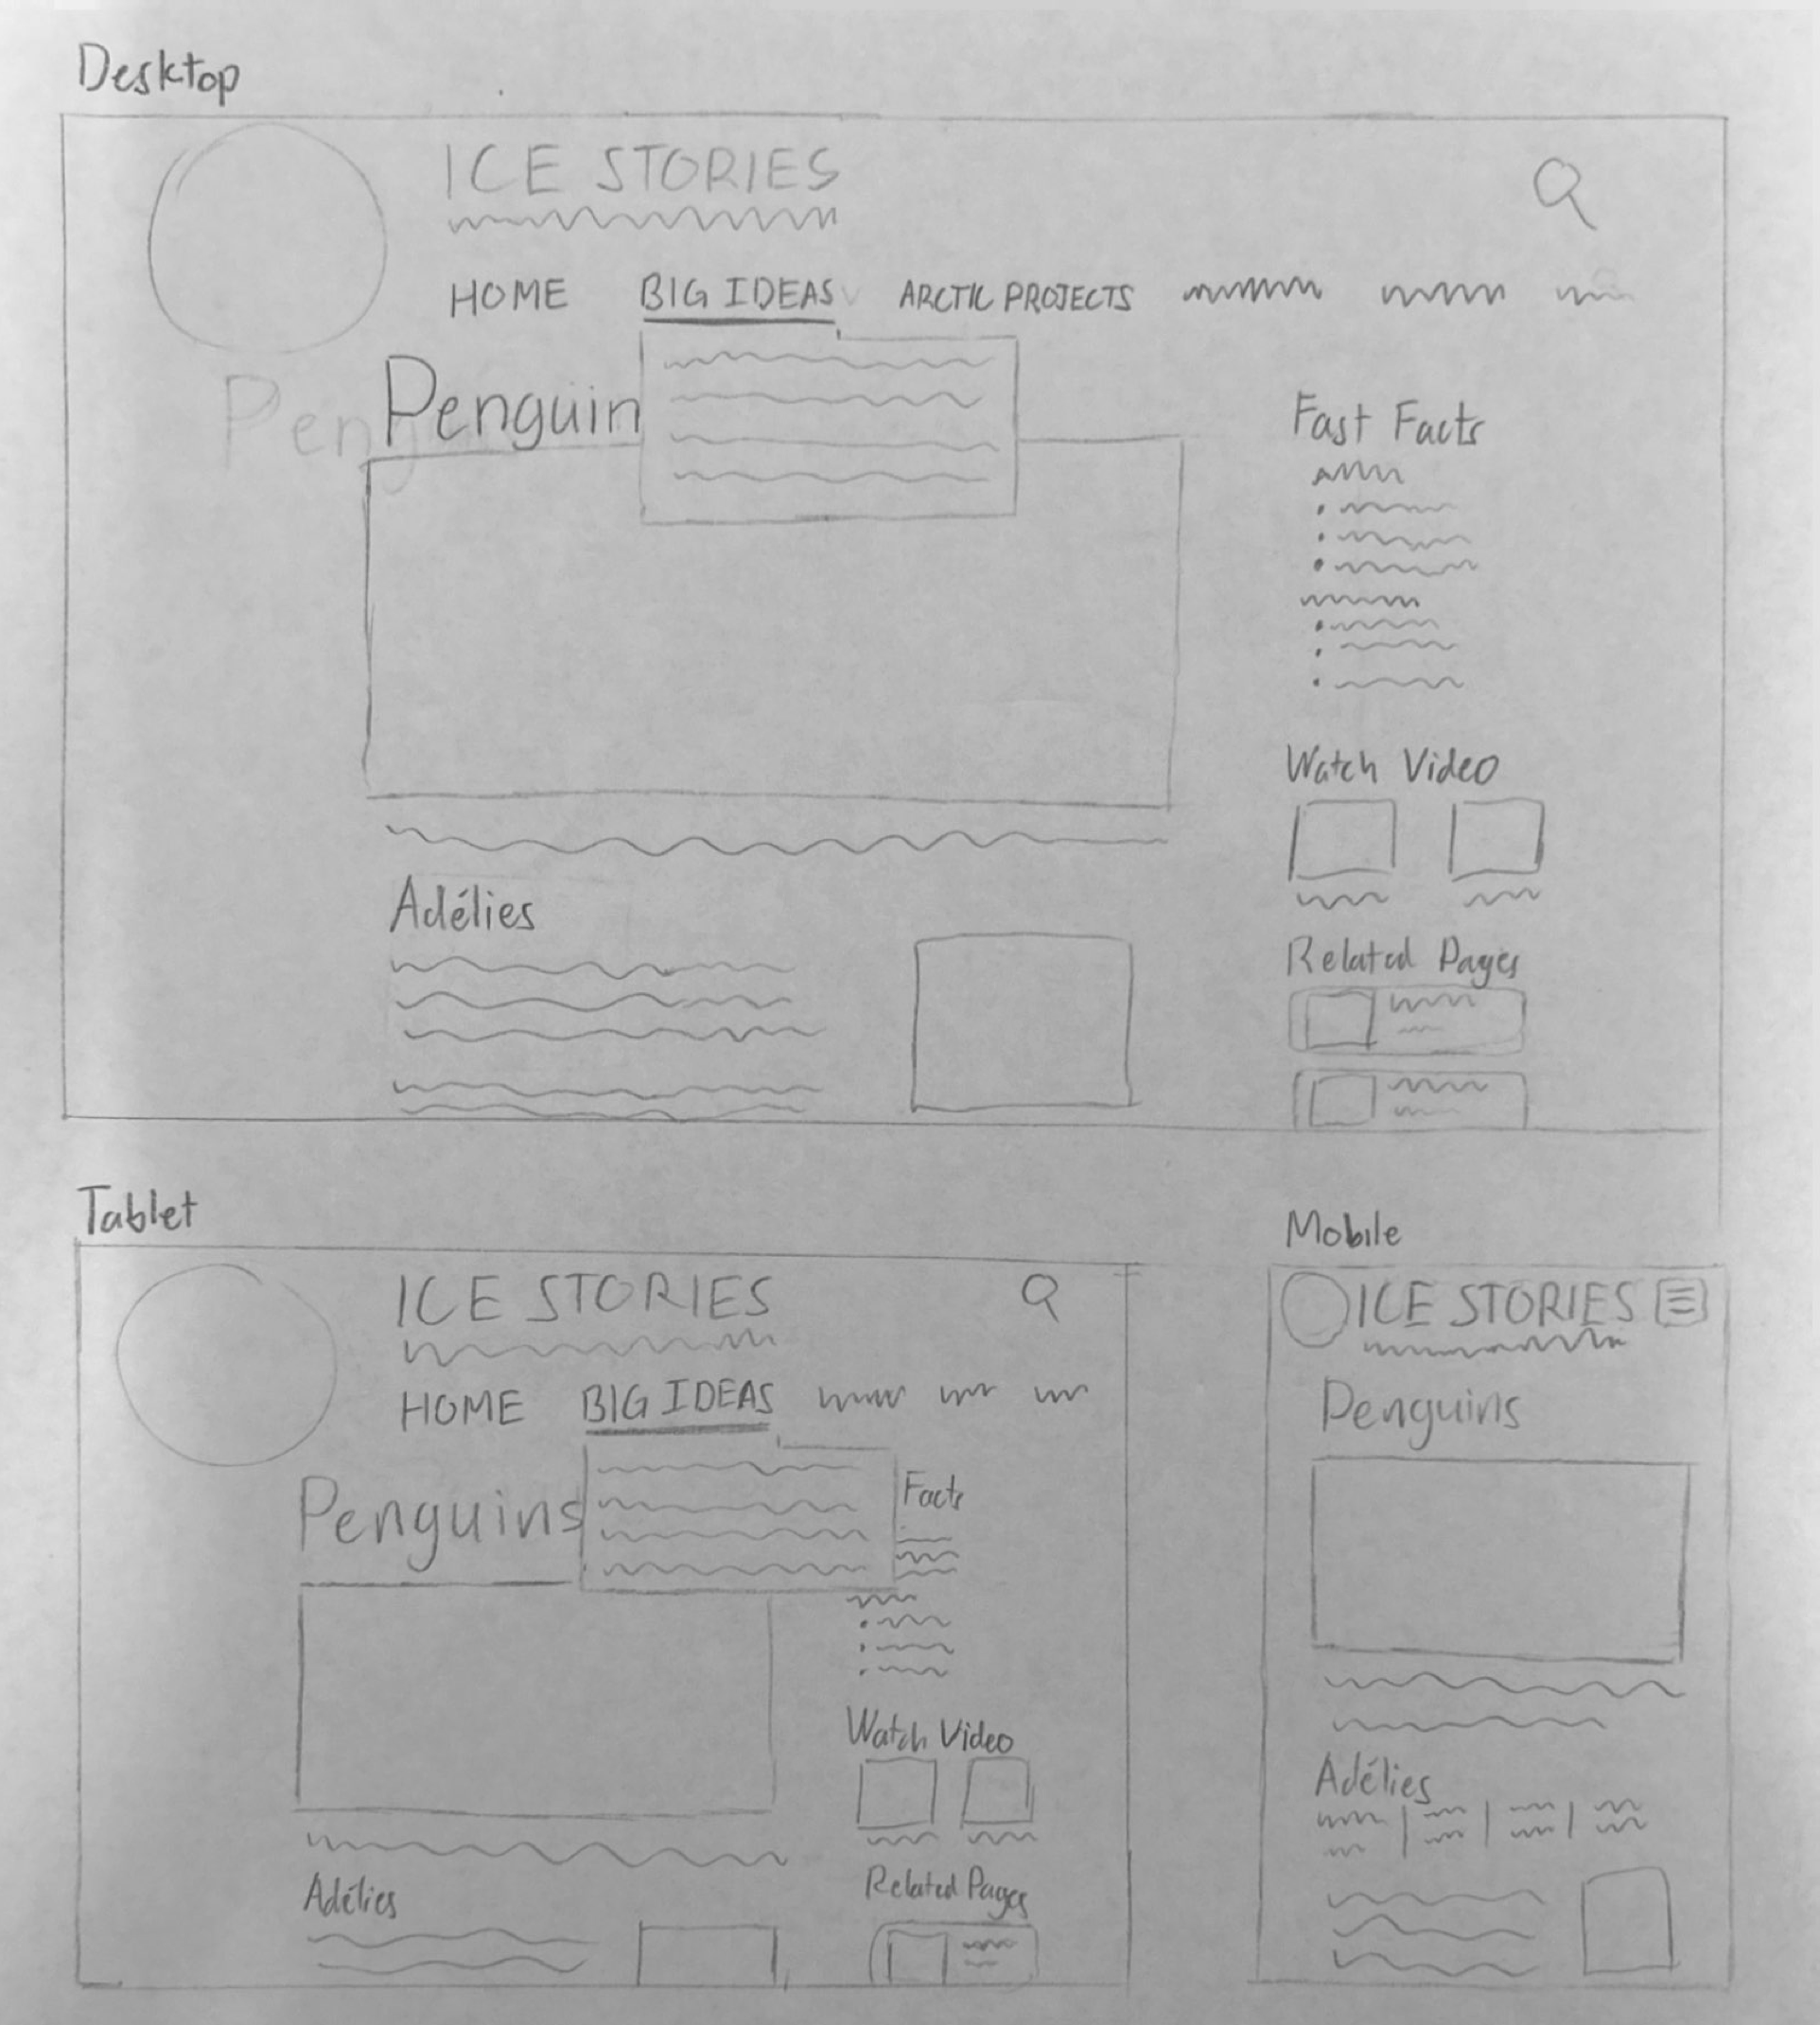 Desktop
ICE STORIES
HOME BIG IDEAS ARCTIC PROJECTS
Penguin
Fast Facts
Watch Video
Adélies
Related Pages
Tablet
ICE STORIES
HOME BIG IDEAS
Penguins
Facts
Watch Video
Adélies
Related Pages
Mobile
ICE STORIES
Penguins
Adélies